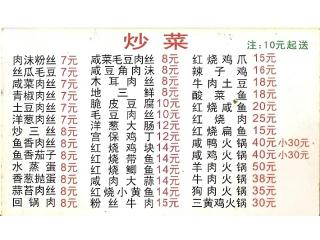 炒菜
注:10元起送
肉沫粉丝 7元
丝瓜毛豆 7元
咸菜肉丝 7元
青椒肉丝 7元
土豆肉丝 7元
洋葱肉丝 7元
炒三丝 8元
鱼香肉丝 8元
鱼香茄子 8元
水蒸蛋 8元
香葱抛蛋 8元
蒜苔肉丝 8元
回锅肉 8元
咸菜毛豆肉丝 8元
咸豆角肉沫 8元
木耳肉丝 8元
地三鲜 8元
脆皮豆腐 10元
毛豆肉丝 10元
洋葱大肠 12元
宫保鸡丁 12元
红烧鸡块 14元
红烧带鱼 14元
红烧鲫鱼 14元
咸肉大蒜 14元
红烧小黄鱼 14元
粉丝牛肉 15元
红烧鸡爪 15元
辣子鸡 16元
牛肉土豆 18元
酸菜鱼 18元
红烧咸鱼 20元
红烧肉 25元
红烧扁鱼 15元
咸鸭火锅 40元小30元
咸鸡火锅 40元小30元
羊肉火锅 50元
牛肉火锅 38元
狗肉火锅 35元
三黄鸡火锅 30元